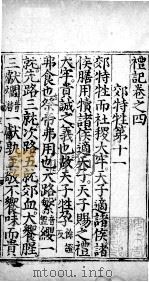 禮記卷之四
郊特牲第十一
郊特牲而社稷大牢天子適諸侯諸
侯膳用犢諸侯適天子天子賜之禮
大牢貴誠之義也故天子牲孕反
弗食也祭帝弗用也大路繁纓一
就先路三就次路五就郊血大饗腥
三獻爓一獻孰至敬不饗味而貴
http://www.toutoku.com